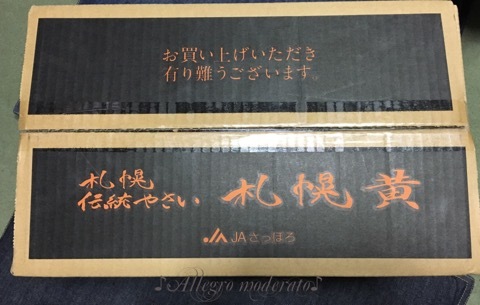 お買い上げいただき
有り難うございます。
札幌
伝統やさい
札幌黄
JAさっぽろ
♪Allegro moderato♪